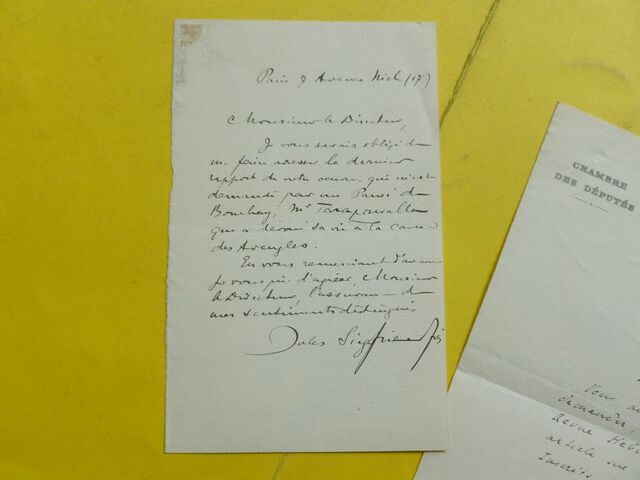 Paris 8 Avenue Niel (17e)
Monsieur le Directeur,
Je vous serais obligé de
me faire adresser le dernier
rapport de votre oeuvre qui m'est
demandé par un Parsi de
Bombay, Mr Taraporvalla
qui a dévoué sa vie à la cause
des Aveugles.
En vous remerciant d'avance
je vous prie d'agréer, Monsieur
le Directeur, l'assurance de
mes sentiments distingués
Jules Siegfried
CHAMBRE
DES DÉPUTÉS
Vous
demander,
Revue
article sur